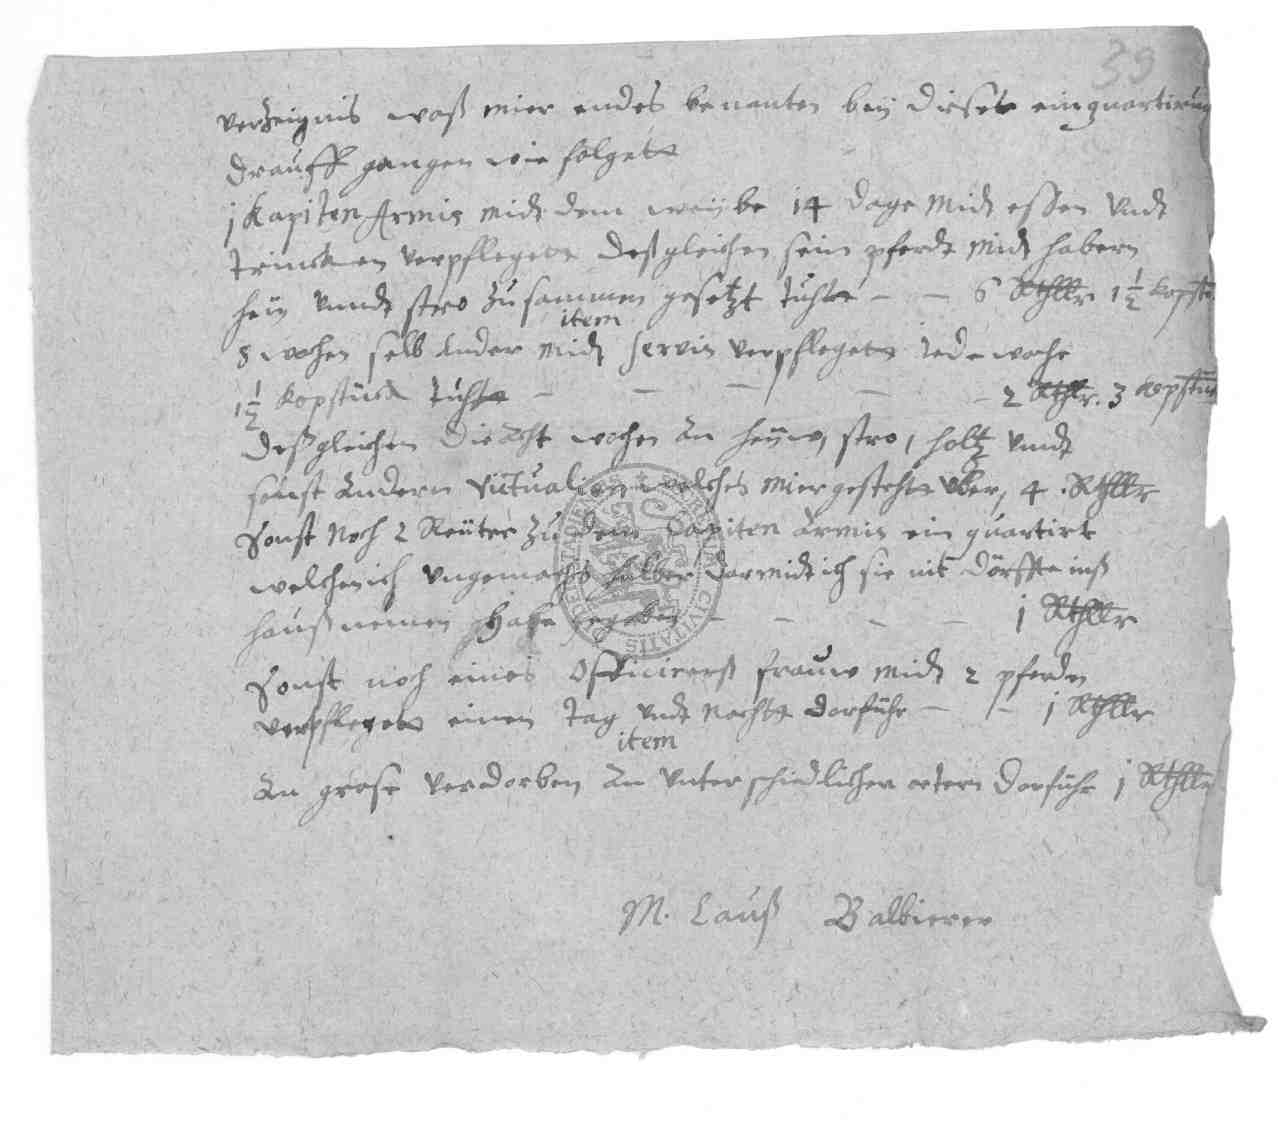 39
verzeignis waß mier endes benanten beÿ dieser einquartirung
drauff gangen wie folgett
j Kapiten Armis midt dem weÿbe 14 dage midt essen undt
trincken verpflegett deßgleichen sein pferdt midt habern
heÿ unndt stro zu sammen gesetzt tuhtt — — 6 Rthllr 1½ kopst
item
8 wochen selb ander midt servis verpflegett jede woche
1½ kopstück tuhtt — — — — — 2 Rthlr. 3 kopstück
deßgleichen die acht wochen an heÿw, stro, holtz unndt
sonst andern victualien welches mier gestehtt über, 4 . Rthllr
Sonst noch 2 Reüter zu dem Capiten armis ein quartirt
welchen ich ungemachs halber darmidt ich sie nit dörffte inß
hauß nemen gegeben — — — — j Rthllr
Sonst noch eines Officirerß frauw midt 2 pferden
verpflegett einen tag undt nachtt darführ — — j Rthllr
item
An grose verdorben an unterschiedlichen ortern darführ j Rthllr
M. Lauß Balbierer
CIVITATIS